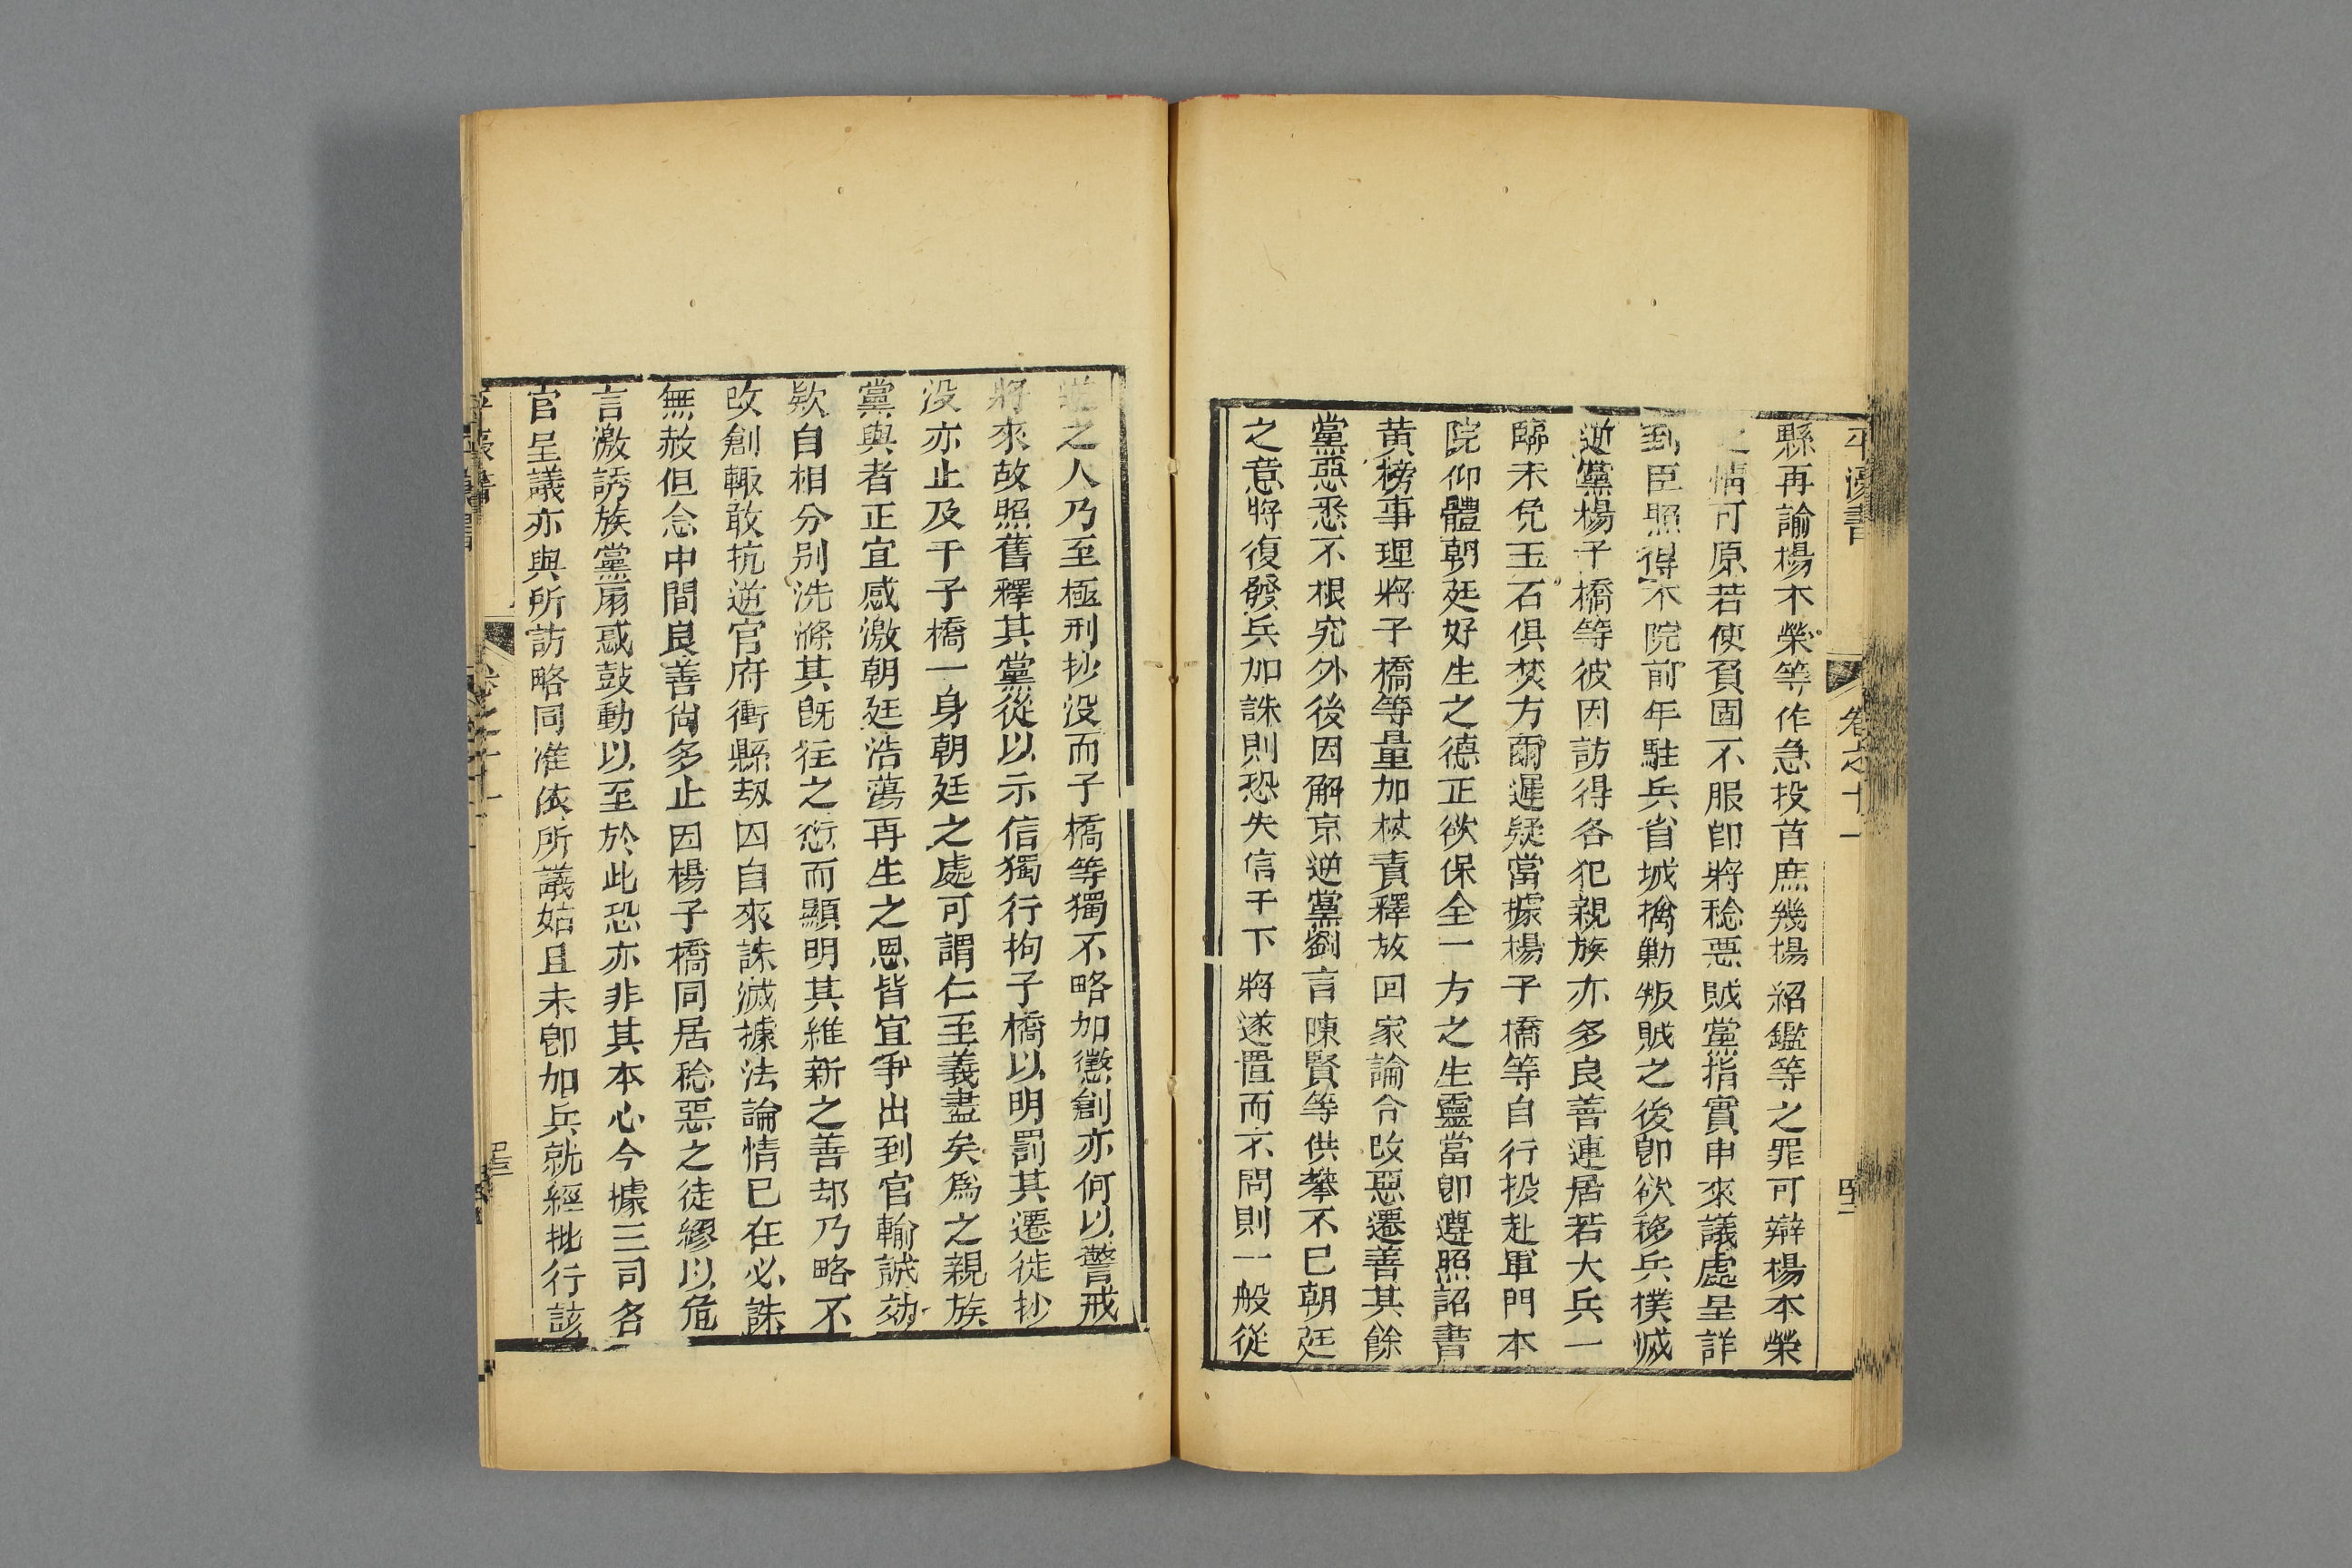 平濠書 卷之十一
縣再諭楊本榮等作急投首庶幾楊紹鑑等之罪可辯楊本榮
之情可原若使負固不服卽將稔惡賊黨指實申來議處呈詳
到臣照得本院前年駐兵省城擒勦叛賊之後卽欲移兵撲滅
逆黨楊子橋等彼因訪得各犯親族亦多良善連居若大兵一
臨未免玉石俱焚方爾遲疑當據楊子橋等自行投赴軍門本
院仰體朝廷好生之德正欲保全一方之生靈當卽遵照詔書
黄榜事理將子橋等量加杖責釋放回家諭令改惡遷善其餘
黨惡悉不根究外後因解京逆黨劉言陳賢等供攀不已朝廷
之意將復發兵加誅則恐失信于下將遂置而不問則一般從
逆之人乃至極刑抄没而子橋等獨不略加懲創亦何以警戒
將來故照舊釋其黨從以示信獨行拘子橋以明罰其遷徙抄
没亦止及于子橋一身朝廷之處可謂仁至義盡矣爲之親族
黨與者正宜感激朝廷浩蕩再生之恩皆宜爭出到官輸誠効
欵自相分别洗滌其旣往之愆而顯明其維新之善却乃略不
改創輒敢抗逆官府衝縣刼囚自來誅滅據法論情已在必誅
無赦但念中間良善尙多止因楊子橋同居稔惡之徒繆以危
言激誘族黨扇惑鼓動以至於此恐亦非其本心今據三司各
官呈議亦與所訪略同准依所議姑且未卽加兵就經批行該
卷之十一